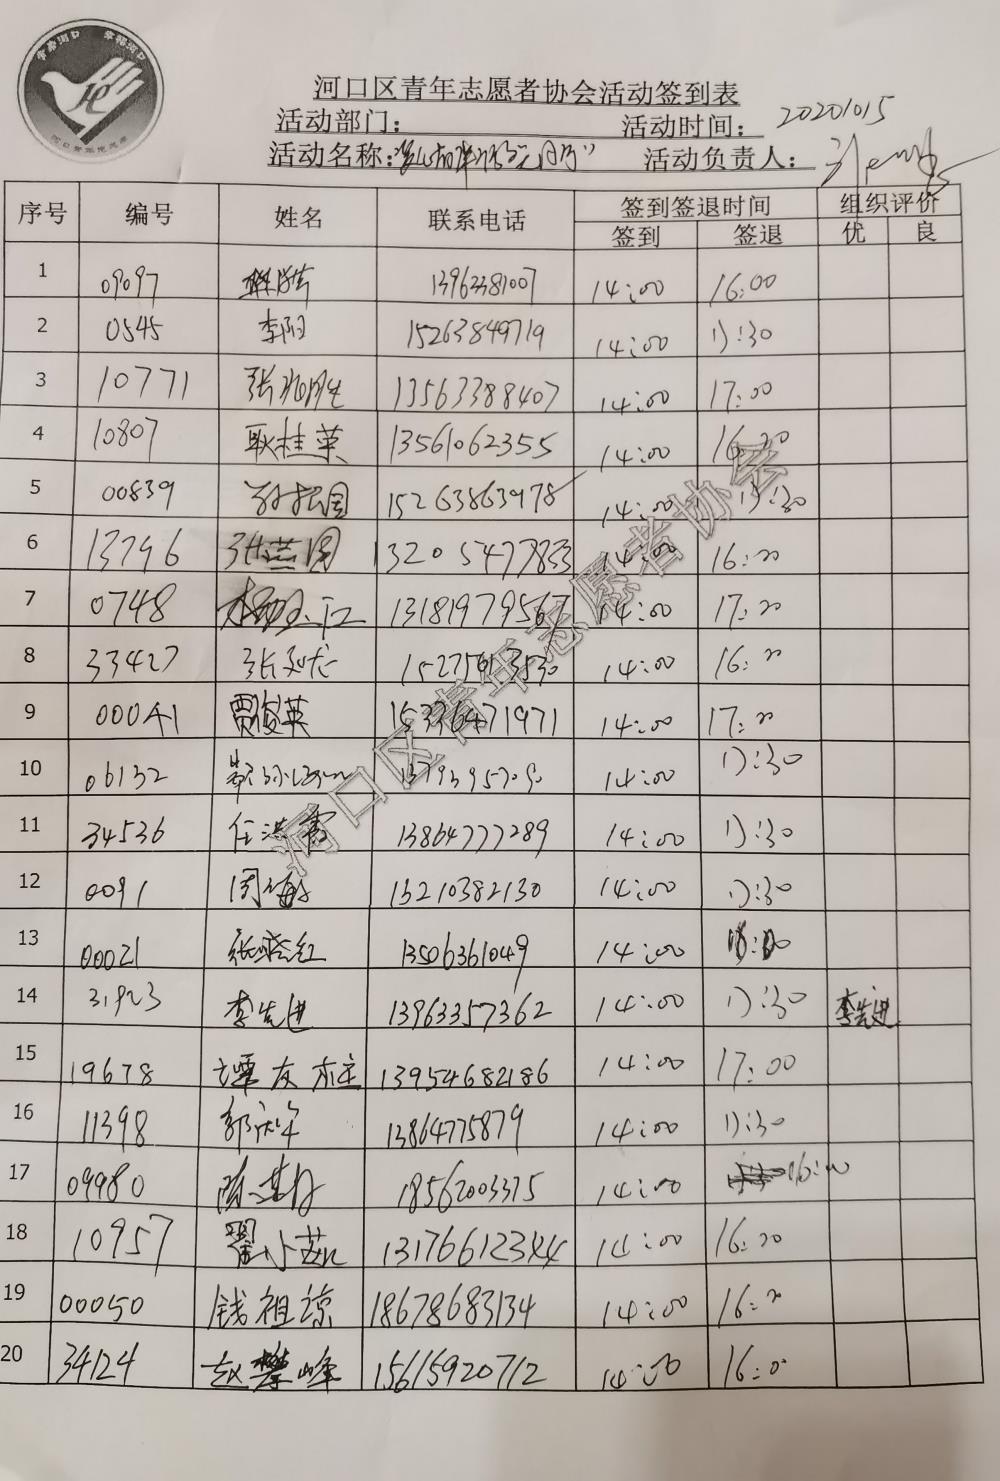 河口区青年志愿者协会活动签到表
活动部门： 活动时间：20201015
活动名称： 活动负责人：
序号 编号 姓名 联系电话 签到签退时间 组织评价
签到 签退 优 良
1 09097 13962381007 14:00 16:00
2 0545 李阳 15263849719 14:00 17:30
3 10771 13563388407 14:00 17:00
4 10807 耿桂英 13561062355 14:00 16:20
5 00839 15263863978 14:00 17:30
6 13796 张燕国 13205477833 14:00 16:20
7 0748 13181979567 14:00 17:20
8 33427 14:00 16:20
9 00041 贾俊英 15336471971 14:00 17:20
10 06132 14:00 17:30
11 34536 13864777289 14:00 17:30
12 0091 周海 13210382130 14:00 17:30
13 00021 张晓红 13506361049 14:00
14 31923 李先进 13963357362 14:00 17:30 李先进
15 19678 谭友柱 13954682186 14:00 17:00
16 11398 13864775879 14:00 17:30
17 09980 18562003375 14:00 16:00
18 10957 13176612344 14:00 16:20
19 00050 钱祖琼 18678683134 14:00 16:20
20 34124 赵攀峰 15615920712 14:00 16:0
河口区青年志愿者协会